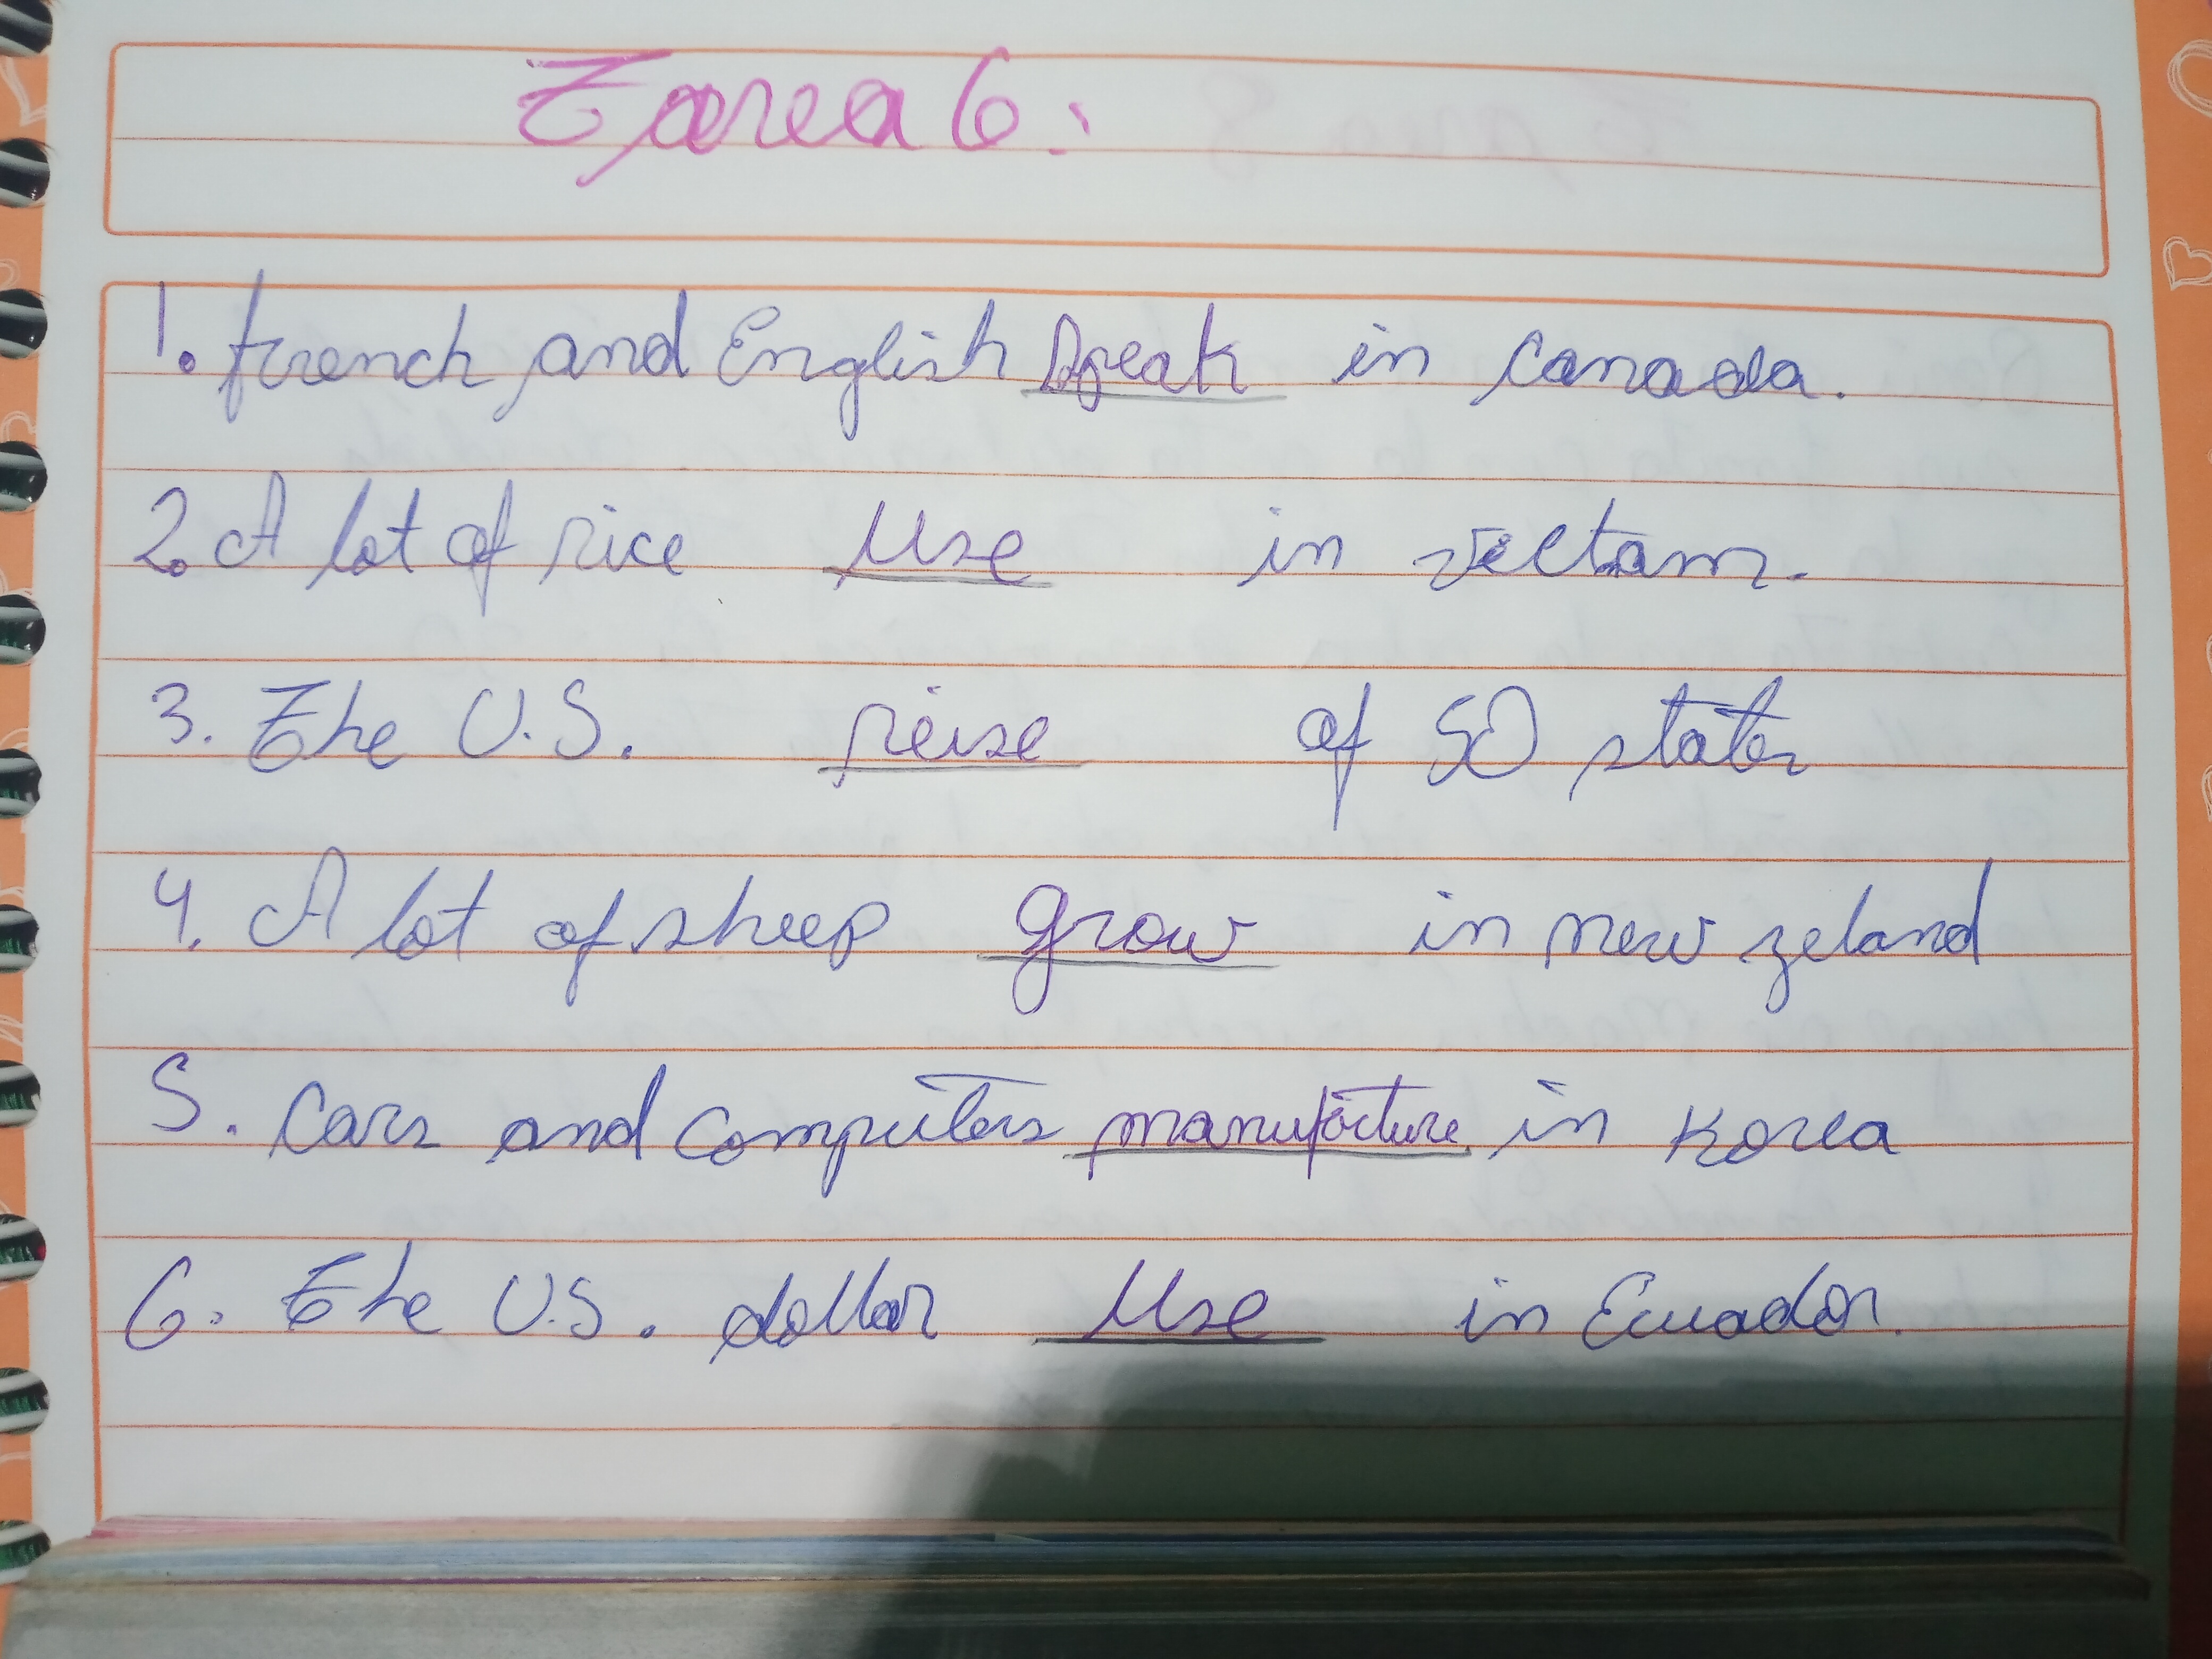 Tarea 6:
1. french and English Speak in Canada.
2. A lot of rice Use in viectam.
3. The U.S. reise of 50 states
4. A lot of sheep grow in new zeland
5. Cars and computers manufacture in Korea
6. The U.S. dollar Use in Ecuador.